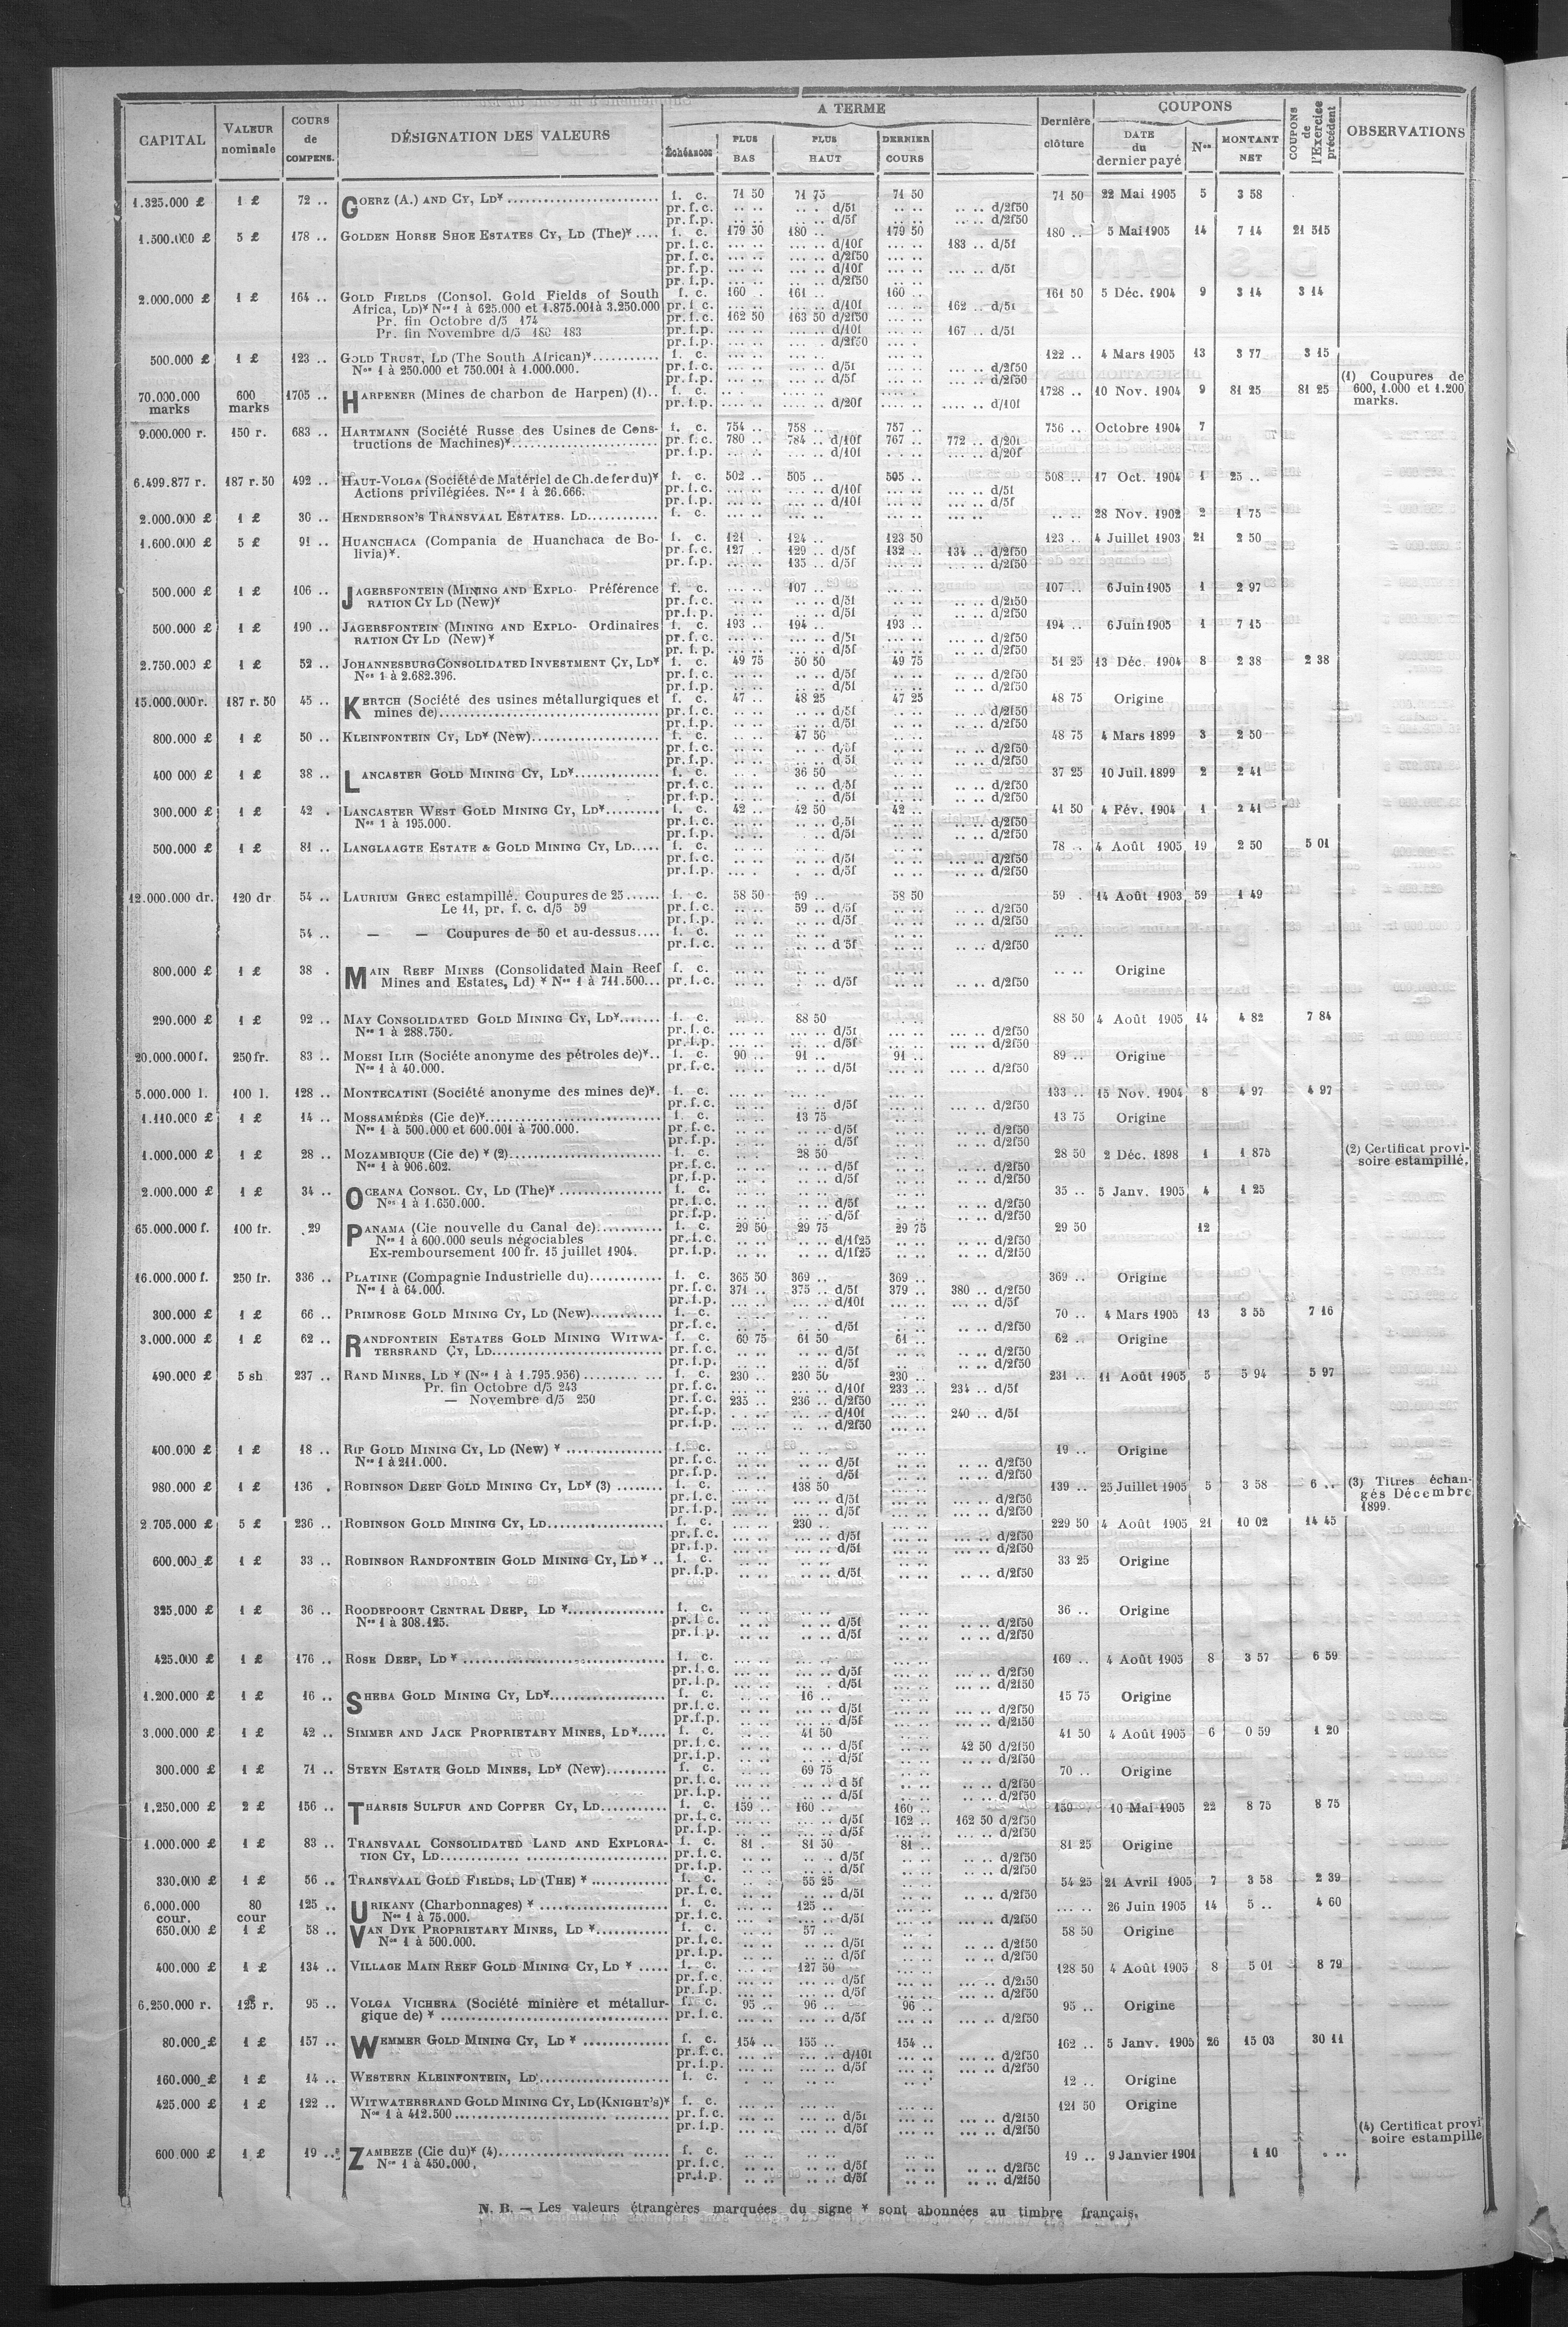 CAPITAL VALEUR nominale COURS de COMPENS. DÉSIGNATION DES VALEURS A TERME Échéances PLUS BAS PLUS HAUT DERNIER COURS Dernière clôture COUPONS DATE du dernier payé Nos MONTANT NET COUPONS de l'Exercice précédent OBSERVATIONS
1.325.000 £ 1 £ 72 .. GOERZ (A.) AND CY, LD¥ f. c. 71 50 71 75 71 50 71 50 22 Mai 1905 5 3 58
pr. f. c. .. .. .. .. d/5f .. .. .. .. d/2f50
pr. f.p. .. .. .. .. d/5f .. .. .. .. d/2f50
1.500.000 £ 5 £ 178 .. GOLDEN HORSE SHOE ESTATES CY, LD (The)¥ .... f. c. 179 50 180 .. 179 50 180 .. 5 Mai 1905 14 7 14 21 515
pr. f. c. ... .. ... .. d/10f ... .. 183 .. d/5f
pr. f. c. ... .. ... .. d/2f50
pr. f.p. ... .. ... .. d/10f ... .. ... .. d/5f
pr. f.p. ... .. ... .. d/2f50
2.000.000 £ 1 £ 164 .. GOLD FIELDS (Consol. Gold Fields of South f. c. 160 . 161 .. 160 .. 161 50 5 Déc. 1904 9 3 14 3 14
Africa, LD)¥ Nos 1 à 625.000 et 1.875.001 à 3.250.000 pr. f. c. ... .. ... .. d/10f ... .. 162 .. d/5f
Pr. fin Octobre d/5 174 pr. f. c. 162 50 163 50 d/2f50
Pr. fin Novembre d/5 180 183 pr. f.p. ... .. ... .. d/10f ... .. 167 .. d/5f
pr. f.p. ... .. ... .. d/2f50
500.000 £ 1 £ 123 .. GOLD TRUST, LD (The South African)¥ f. c. 122 .. 4 Mars 1905 13 3 77 3 15
Nos 1 à 250.000 et 750.001 à 1.000.000. pr. f. c. ... .. d/5f ... .. d/2f50
pr. f.p. ... .. d/5f ... .. d/2f50
70.000.000 marks 600 marks 1705 .. HARPENER (Mines de charbon de Harpen) (1).. f. c. 1728 .. 10 Nov. 1904 9 81 25 81 25 (1) Coupures de 600, 1.000 et 1.200 marks.
pr. f.p. .... .. .... .. d/20f .... .. .... .. d/10f
9.000.000 r. 150 r. 683 .. HARTMANN (Société Russe des Usines de Cons- f. c. 754 .. 758 .. 757 .. 756 .. Octobre 1904 7
tructions de Machines)¥ pr. f. c. 780 .. 784 .. d/10f 767 .. 772 .. d/20f
pr. f.p. ... .. ... .. d/10f ... .. d/20f
6.499.877 r. 187 r. 50 492 .. HAUT-VOLGA (Société de Matériel de Ch. de fer du)¥ f. c. 502 .. 505 .. 505 .. 508 .. 17 Oct. 1904 1 25 ..
Actions privilégiées. Nos 1 à 26.666. pr. f. c. ... .. ... .. d/10f ... .. d/5f
pr. f.p. ... .. ... .. d/10f ... .. d/5f
2.000.000 £ 1 £ 30 .. HENDERSON'S TRANSVAAL ESTATES. LD f. c. .. .. 28 Nov. 1902 2 1 75
1.600.000 £ 5 £ 91 .. HUANCHACA (Compania de Huanchaca de Bo- f. c. 121 . 124 .. 123 50 123 .. 4 Juillet 1903 21 2 50
livia)¥. pr. f. c. 127 .. 129 .. d/5f 132 .. 134 .. d/2f50
pr. f.p. 135 .. d/5f ... .. d/2f50
500.000 £ 1 £ 106 .. JAGERSFONTEIN (MINING AND EXPLO- Préférence f. c. ... .. 107 .. 107 .. 6 Juin 1905 1 2 97
RATION CY LD (New)¥ pr. f. c. .. .. d/5f .. .. d/2f50
pr. f.p. .. .. d/5f .. .. d/2f50
500.000 £ 1 £ 190 .. JAGERSFONTEIN (MINING AND EXPLO- Ordinaires f. c. 193 .. 194 .. 193 .. 194 .. 6 Juin 1905 1 7 15
RATION CY LD (New) ¥ pr. f. c. ... .. d/5f .. .. d/2f50
pr. f. p. ... .. d/5f .. .. d/2f50
2.750.000 £ 1 £ 52 .. JOHANNESBURG CONSOLIDATED INVESTMENT CY, LD¥ f. c. 49 75 50 50 49 75 51 25 13 Déc. 1904 8 2 38 2 38
Nos 1 à 2.682.396. pr. f. c. .. .. d/5f .. .. d/2f50
pr. f.p. .. .. d/5f .. .. d/2f50
15.000.000 r. 187 r. 50 45 .. KERTCH (Société des usines métallurgiques et f. c. 47 .. 48 25 47 25 48 75 Origine
mines de) pr. f. c. .. .. d/5f .. .. d/2f50
pr. f.p. .. .. d/5f .. .. d/2f50
800.000 £ 1 £ 50 .. KLEINFONTEIN CY, LD¥ (New) f. c. .. .. 47 50 48 75 4 Mars 1899 3 2 50
pr. f. c. .. .. d/5f .. .. d/2f50
pr. f.p. .. .. d/5f .. .. d/2f50
400 000 £ 1 £ 38 .. LANCASTER GOLD MINING CY, LD¥ f. c. 36 50 37 25 10 Juil. 1899 2 2 41
pr. f. c. .. .. d/5f .. .. d/2f50
pr. f.p. .. .. d/5f .. .. d/2f50
300.000 £ 1 £ 42 . LANCASTER WEST GOLD MINING CY, LD¥ f. c. 42 .. 42 50 42 .. 41 50 4 Fév. 1904 1 2 41
Nos 1 à 195.000. pr. f. c. .. .. d/5f .. .. d/2f50
pr. f.p. .. .. d/5f .. .. d/2f50
500.000 £ 1 £ 81 .. LANGLAAGTE ESTATE & GOLD MINING CY, LD f. c. 78 .. 4 Août 1905 19 2 50 5 01
pr. f. c. .. .. d/5f .. .. d/2f50
pr. f.p. .. .. d/5f .. .. d/2f50
12.000.000 dr. 120 dr 54 .. LAURIUM GREC estampillé. Coupures de 25 f. c. 58 50 59 .. 58 50 59 . 14 Août 1903 59 1 49
Le 11, pr. f. c. d/5 59 pr. f. c. 59 .. d/5f .. .. d/2f50
pr. f.p. .. .. d/5f .. .. d/2f50
54 .. — — Coupures de 50 et au-dessus.... f. c. .. ..
pr. f. c. .. .. d 5f .. .. d/2f50
800.000 £ 1 £ 38 . MAIN REEF MINES (Consolidated Main Reef f. c. .. .. Origine
Mines and Estates, Ld) ¥ Nos 1 à 711.500... pr. f. c. .. .. d/5f .. .. d/2f50
290.000 £ 1 £ 92 .. MAY CONSOLIDATED GOLD MINING CY, LD¥ f. c. 88 50 88 50 4 Août 1905 14 4 82 7 84
Nos 1 à 288.750. pr. f. c. .. .. d/5f ... .. d/2f50
pr. f.p. .. .. d/5f ... .. d/2f50
20.000.000 f. 250 fr. 83 .. MOESI ILIR (Sociéte anonyme des pétroles de)¥.. f. c. 90 .. 91 .. 91 .. 89 .. Origine
Nos 1 à 40.000. pr. f. c. .. .. d/5f ... .. d/2f50
5.000.000 l. 100 l. 128 .. MONTECATINI (Société anonyme des mines de)¥. f. c. 133 .. 15 Nov. 1904 8 4 97 4 97
pr. f. c. ... .. d/5f ... .. d/2f50
1.110.000 £ 1 £ 14 .. MOSSAMÉDÈS (Cie de)¥ f. c. 13 75 13 75 Origine
Nos 1 à 500.000 et 600.001 à 700.000. pr. f. c. .. .. d/5f .. .. d/2f50
pr. f.p. .. .. d/5f .. .. d/2f50
1.000.000 £ 1 £ 28 .. MOZAMBIQUE (Cie de) ¥ (2) f. c. 28 50 28 50 2 Déc. 1898 1 1 875 (2) Certificat provi-
Nos 1 à 906.602. pr. f. c. .. .. d/5f .. .. d/2f50 soire estampillé.
pr. f.p. .. .. d/5f .. .. d/2f50
2.000.000 £ 1 £ 34 .. OCEANA CONSOL. CY, LD (The)¥ f. c. 35 .. 5 Janv. 1905 4 1 25
Nos 1 à 1.650.000. pr. f. c. .. .. d/5f .. .. d/2f50
pr. f.p. .. .. d/5f .. .. d/2f50
65.000.000 f. 100 fr. 29 PANAMA (Cie nouvelle du Canal de) f. c. 29 50 29 75 29 75 29 50 12
Nos 1 à 600.000 seuls négociables pr. f. c. .. .. d/1f25 .. .. d/2f50
Ex-remboursement 100 fr. 15 juillet 1904. pr. f.p. .. .. d/1f25 .. .. d/2f50
16.000.000 f. 250 fr. 336 .. PLATINE (Compagnie Industrielle du) f. c. 365 50 369 .. 369 .. 369 .. Origine
Nos 1 à 64.000. pr. f. c. 371 .. 375 .. d/5f 379 .. 380 .. d/2f50
pr. f.p. ... .. d/10f ... .. d/5f
300.000 £ 1 £ 66 .. PRIMROSE GOLD MINING CY, LD (New) f. c. 70 .. 4 Mars 1905 13 3 55 7 16
pr. f. c. .. .. d/5f .. .. d/2f50
3.000.000 £ 1 £ 62 .. RANDFONTEIN ESTATES GOLD MINING WITWA- f. c. 60 75 61 50 61 .. 62 .. Origine
TERSRAND CY, LD pr. f. c. .. .. d/5f .. .. d/2f50
pr. f.p. .. .. d/5f .. .. d/2f50
490.000 £ 5 sh 237 .. RAND MINES, LD ¥ (Nos 1 à 1.795.956) f. c. 230 .. 230 50 230 .. 231 .. 11 Août 1905 5 5 94 5 97
Pr. fin Octobre d/5 243 pr. f. c. ... .. ... .. d/10f 233 .. 234 .. d/5f
— Novembre d/5 250 pr. f. c. 235 .. 236 .. d/2f50
pr. f.p. ... .. d/10f ... .. 240 .. d/5f
pr. f.p. ... .. d/2f50
400.000 £ 1 £ 18 .. RIP GOLD MINING CY, LD (New) ¥ f. c. 19 .. Origine
Nos 1 à 211.000. pr. f. c. .. .. d/5f .. .. d/2f50
pr. f.p. .. .. d/5f .. .. d/2f50
980.000 £ 1 £ 136 . ROBINSON DEEP GOLD MINING CY, LD¥ (3) f. c. 138 50 139 .. 25 Juillet 1905 5 3 58 6 .. (3) Titres échan-
pr. f. c. ... .. d/5f ... .. d/2f50 gés Décembre
pr. f.p. ... .. d/5f ... .. d/2f50 1899.
2 705.000 £ 5 £ 236 .. ROBINSON GOLD MINING CY, LD f. c. 230 .. 229 50 4 Août 1905 21 10 02 14 45
pr. f. c. ... .. d/5f ... .. d/2f50
pr. f.p. ... .. d/5f ... .. d/2f50
600.000 £ 1 £ 33 .. ROBINSON RANDFONTEIN GOLD MINING CY, LD ¥ .. f. c. 33 25 Origine
pr. f.p. .. .. d/5f ... .. d/2f50
325.000 £ 1 £ 36 .. ROODEPOORT CENTRAL DEEP, LD ¥ f. c. 36 .. Origine
Nos 1 à 308.125. pr. f. c. .. .. d/5f .. .. d/2f50
pr. f. p. .. .. d/5f .. .. d/2f50
425.000 £ 1 £ 176 .. ROSE DEEP, LD ¥ f. c. 169 .. 4 Août 1905 8 3 57 6 59
pr. f. c. ... .. d/5f ... .. d/2f50
pr. f.p. ... .. d/5f ... .. d/2f50
1.200.000 £ 1 £ 16 .. SHEBA GOLD MINING CY, LD¥ f. c. 16 .. 15 75 Origine
pr. f. c. .. .. d/5f .. .. d/2f50
pr. f.p. .. .. d/5f .. .. d/2f50
3.000.000 £ 1 £ 42 .. SIMMER AND JACK PROPRIETARY MINES, LD¥ f. c. 41 50 41 50 4 Août 1905 6 0 59 1 20
pr. f. c. .. .. d/5f 42 50 d/2f50
pr. f.p. .. .. d/5f .. .. d/2f50
300.000 £ 1 £ 71 .. STEYN ESTATE GOLD MINES, LD¥ (New) f. c. 69 75 70 .. Origine
pr. f. c. .. .. d 5f .. .. d/2f50
pr. f.p. .. .. d/5f .. .. d/2f50
1.250.000 £ 2 £ 156 .. THARSIS SULFUR AND COPPER CY, LD f. c. 159 .. 160 .. 160 .. 159 .. 10 Mai 1905 22 8 75 8 75
pr. f. c. ... .. d/5f 162 .. 162 50 d/2f50
pr. f.p. ... .. d/5f ... .. d/2f50
1.000.000 £ 1 £ 83 .. TRANSVAAL CONSOLIDATED LAND AND EXPLORA- f. c. 81 . 81 50 81 .. 81 25 Origine
TION CY, LD pr. f. c. .. .. d/5f .. .. d/2f50
pr. f.p. .. .. d/5f .. .. d/2f50
330.000 £ 1 £ 56 .. TRANSVAAL GOLD FIELDS, LD (THE) ¥ f. c. 55 25 54 25 21 Avril 1905 7 3 58 2 39
pr. f. c. .. .. d/5f .. .. d/2f50
6.000.000 cour. 80 cour 125 .. URIKANY (Charbonnages) ¥ f. c. 125 .. ... .. 26 Juin 1905 14 5 .. 4 60
Nos 1 à 75.000. pr. f. c. ... .. d/5f ... .. d/2f50
650.000 £ 1 £ 58 .. VAN DYK PROPRIETARY MINES, LD ¥ f. c. 57 .. 58 50 Origine
Nos 1 à 500.000. pr. f. c. .. .. d/5f .. .. d/2f50
pr. f.p. .. .. d/5f .. .. d/2f50
400.000 £ 1 £ 134 .. VILLAGE MAIN REEF GOLD MINING CY, LD ¥ f. c. 127 50 128 50 4 Août 1905 8 5 01 8 79
pr. f. c. ... .. d/5f ... .. d/2f50
pr. f.p. ... .. d/5f ... .. d/2f50
6.250.000 r. 125 r. 95 .. VOLGA VICHERA (Société minière et métallur- f. c. 95 .. 96 .. 96 .. 95 .. Origine
gique de) ¥ pr. f. c. .. .. d/5f ... .. d/2f50
80.000 £ 1 £ 157 .. WEMMER GOLD MINING CY, LD ¥ f. c. 154 .. 155 .. 154 .. 162 .. 5 Janv. 1905 26 15 03 30 11
pr. f. c. ... .. d/10f ... .. d/2f50
pr. f.p. ... .. d/5f ... .. d/2f50
160.000 £ 1 £ 14 .. WESTERN KLEINFONTEIN, LD f. c. 12 .. Origine
425.000 £ 1 £ 122 .. WITWATERSRAND GOLD MINING CY, LD (KNIGHT'S)¥ f. c. 121 50 Origine
Nos 1 à 412.500 pr. f. c. ... .. d/5f ... .. d/2f50
pr. f.p. ... .. d/5f ... .. d/2f50 (4) Certificat provi
soire estampillé
600.000 £ 1 £ 19 .. ZAMBEZE (Cie du)¥ (4) f. c. 19 .. 9 Janvier 1901 1 10 . ..
Nos 1 à 450.000. pr. f. c. .. .. d/5f .. .. d/2f50
pr. f.p. .. .. d/5f .. .. d/2f50
N. B. — Les valeurs étrangères marquées du signe ¥ sont abonnées au timbre français.